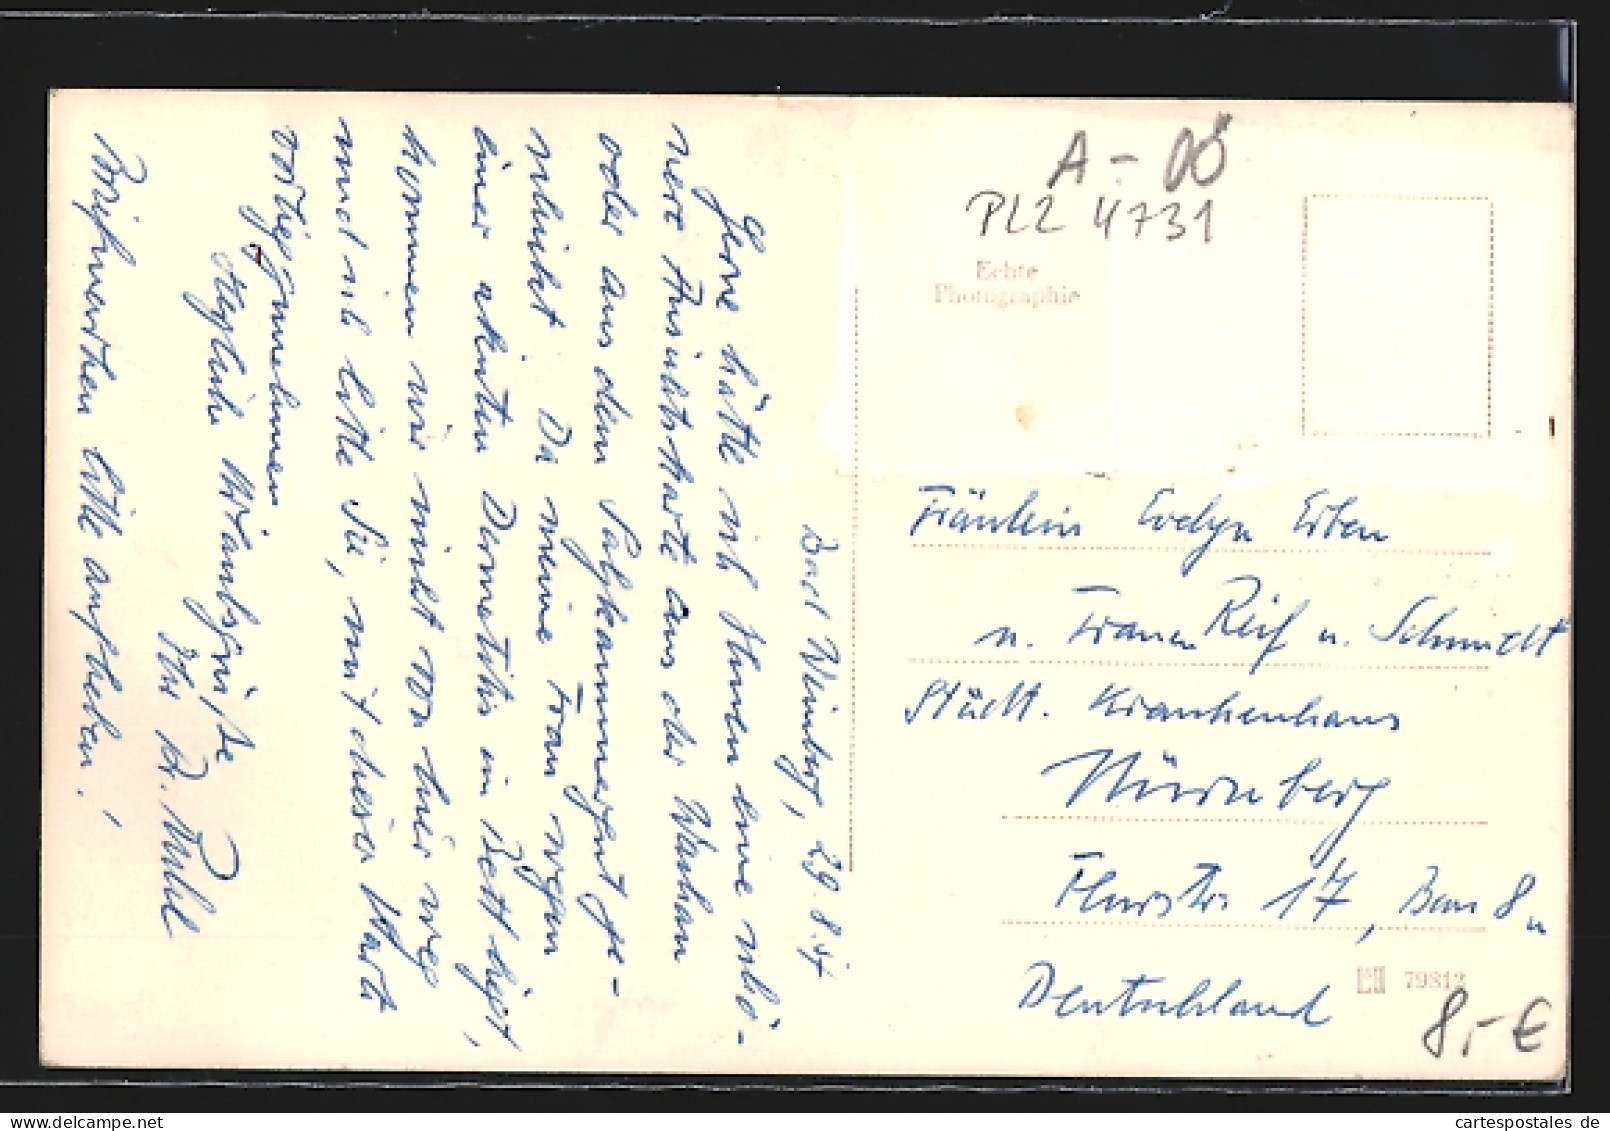 A - OÖ
PLZ 4731
Echte
Photographie
Bad Weinberg, 29.8.47
Gerne hätte ich Ihnen eine schö-
nere Ansichtskarte aus der Wachau
oder aus dem Salzkammergut ge-
schickt. Da meine Frau wegen
einer akuten Dermatitis im Bett liegt,
kommen wir nicht von hier weg
und ich bitte Sie, mit dieser Karte
vorliebzunehmen
Herzliche Urlaubsgrüße
Ihr Dr.
Briefmarken bitte aufheben!
Fräulein Evelyn Erben
u. Frauen Reif u. Schmidt
Städt. Krankenhaus
Nürnberg
Flurstr. 17, Bau 8
Deutschland
79812
8,- €
cartespostales de